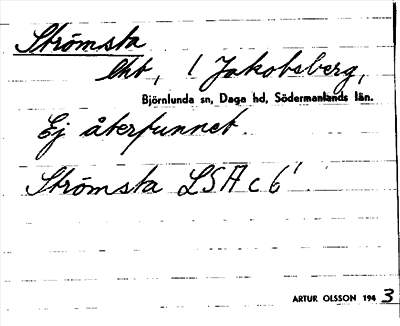 Strömsta
lht, / Jakobsberg,
Björnlunda sn, Daga hd, Södermanlands län.
Ej återfunnet.
Strömsta LSA c 6¹
ARTUR OLSSON 194 3